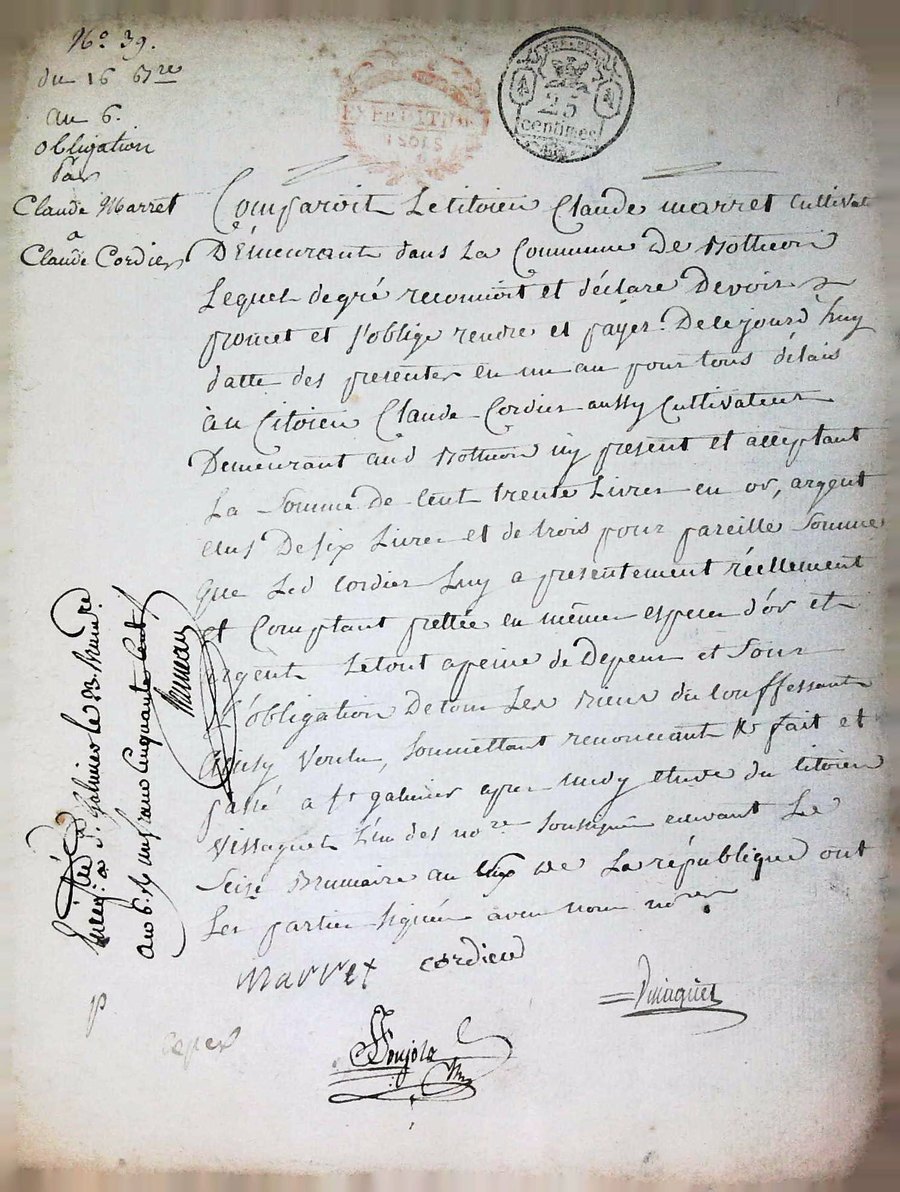 N° 39.
du 16 bre
an 6.
obligation
Par
Claude Marret
a
Claude Cordier
EXPEDITION
SOLS
REP. FRA.
25
centimes
Comparoit Le citoien Claude marret Cultivat
Demeurant dans La Commune De
Lequel de gré reconnoit et déclare Devoir
promet et s'oblige rendre et payer. De ce jourd'huy
datte des presentes en un an pour tous délais
àu Citoien Claude Cordier aussy Cultivateur
Demeurant aud icy present et acceptant
La Somme De Cent trente Livres en or, argent
ecus De six Livres et de trois pour pareille Somme
que Led Cordier Luy a presentement réellement
et Comptant prettée en même espece d'or et
argent Le tout a peine de Depens et Sous
l'obligation De tous Les Biens du Confessant
Ainsy Voulu, Soumettant renoncant & fait et
passé a St galmier apres midy etude du citoien
L'un des nore Soussignés avant Le
Seize Brumaire an Six De La république ont
Les parties signées avec nous nores
Marret cordier
Soujola
enregistré a St. Galmier le 23 brumaire
an 6. R un franc cinquante cent